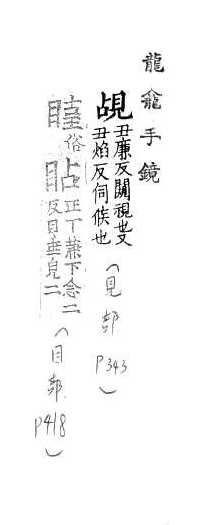 龍龕手鏡
覘丑廉反闚視也又丑焰反伺候也(見部P343)
𥇓俗䀡正丁兼下念二反目垂皃二(目部P418)